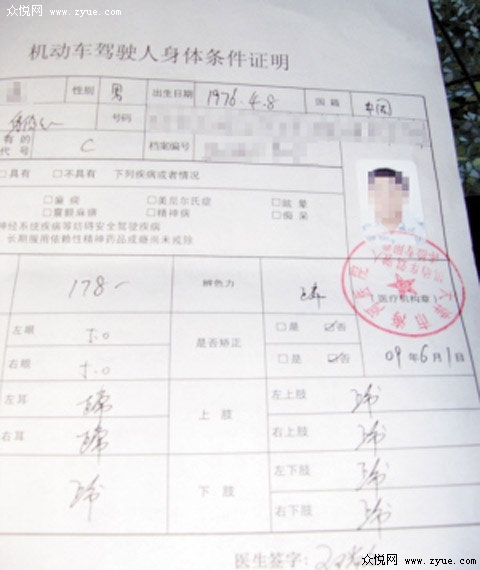 众悦网 www.zyue.com
机动车驾驶人身体条件证明
性别 男 出生日期 1976.4.8 国籍 中国
号码
有的
代号 C 档案编号
□具有 □不具有 下列疾病或者情况
□癫痫 □美尼尔氏症 □眩晕
□震颤麻痹 □精神病 □痴呆
神经系统疾病等妨碍安全驾驶疾病
长期服用依赖性精神药品成瘾尚未戒除
178 辨色力 正常 (医疗机构章)
左眼 5.0 是否矫正 □是 ☑否
右眼 5.0 □是 ☑否 09年6月1日
左耳 正常 上肢 左上肢 正常
右耳 正常 右上肢 正常
正常 下肢 左下肢 正常
右下肢 正常
医生签字:
众悦网 www.zyue.com